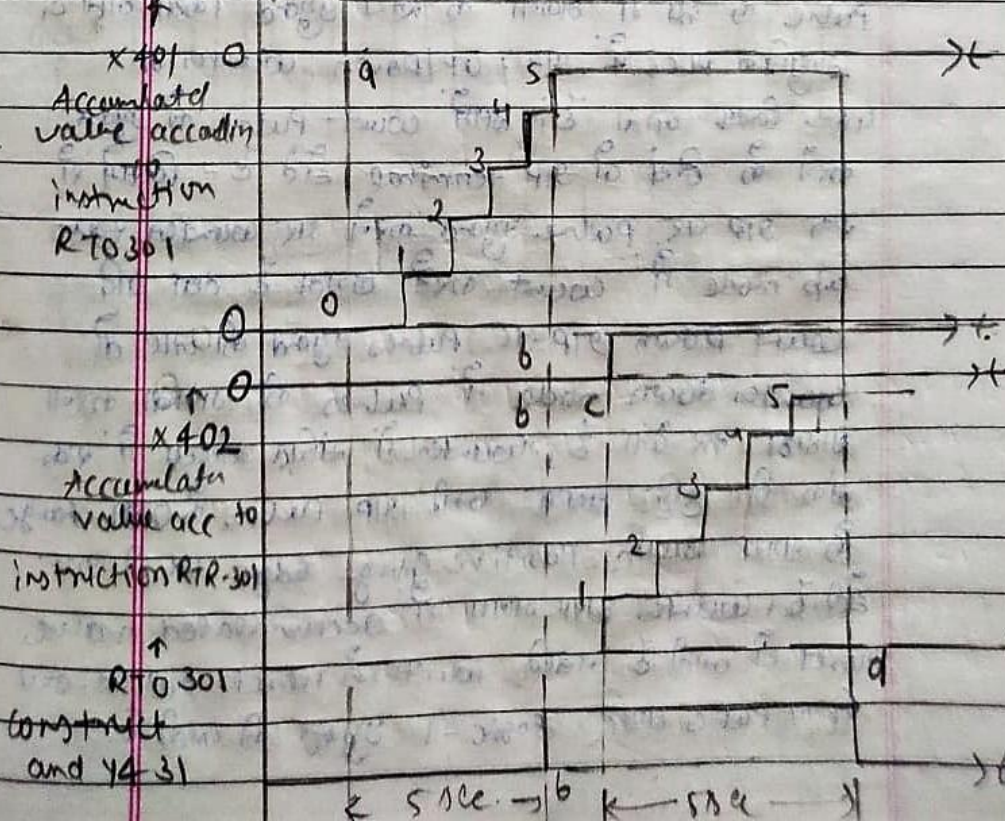 X401 0 a 5
Accumlatd
value accodin 4
to 3
instruction
RTO301 2
1
0
0 b t
0 b c 5
X402 4
Accumulatn 3
value acc. to
2
instriction RTR-301 1
RTO 301 d
construct
and Y431 5 sec. b 5 sec